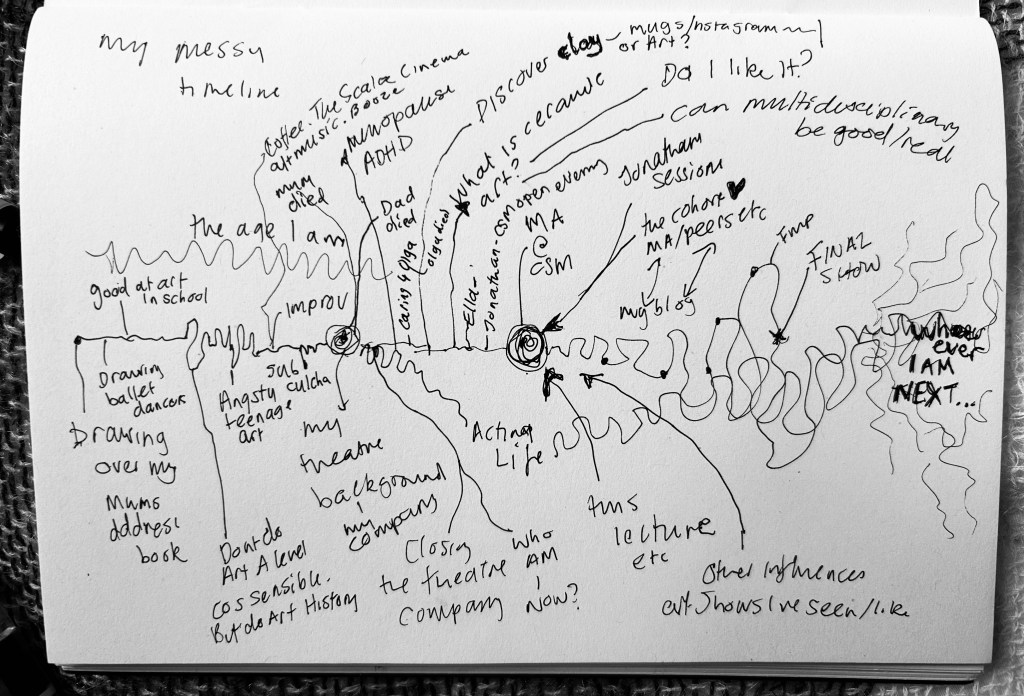 my messy
timeline
Coffee. The Scala Cinema
alt music. Booze
mum
died
menopause
ADHD
Dad
died
the age I am
good at art
in school
improv
Caring 4 Olga
Olga died
Ella
Jonathan - CSM open evening
What is ceramic
art?
DISCOVER clay - mugs/instagram
or Art?
Do I like it?
can multidisciplinary
be good/real
MA
@
CSM
Jonathan
session
the cohort
MA/peers etc
my blog
Fmp
FINAL
SHOW
Whoever
ever
I AM
NEXT...
Drawing
ballet
dancers
Drawing
over my
Mums
address
book
Angsty
teenage
art
sub
culcha
my
theatre
background
my
company
Dont do
Art A level
cos sensible.
But do Art History
Closing
the theatre
company
Who
AM
I
Now?
Acting
Life
lecture
etc
Other influences
art shows Ive seen/like